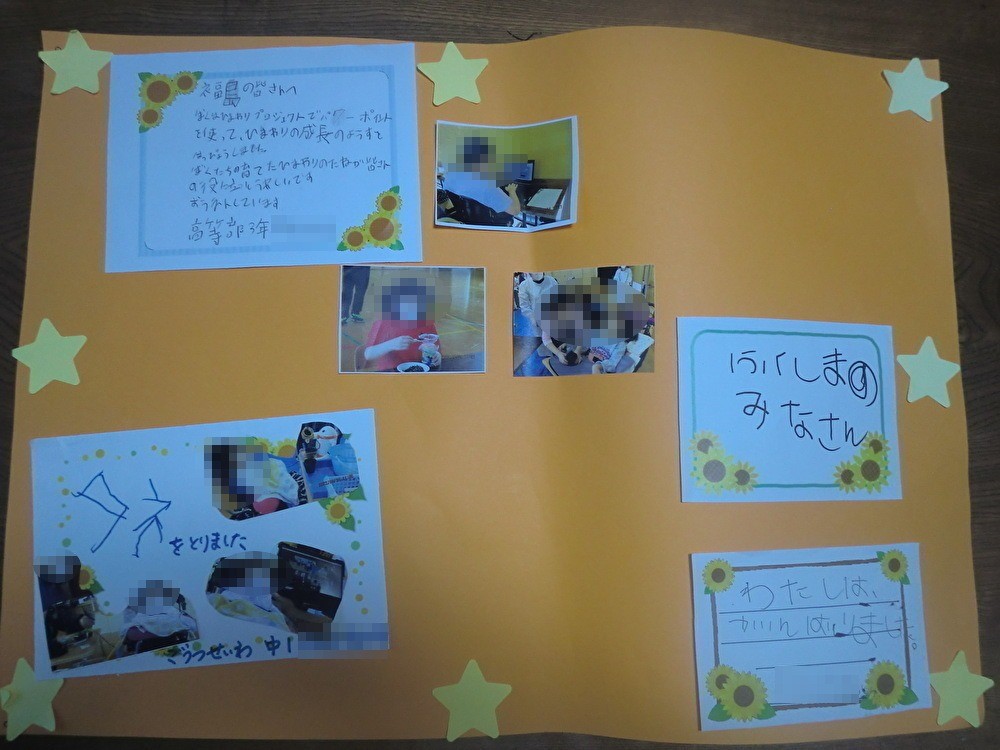 福島の皆さんへ
ぼくはひまわりプロジェクトでパワーポイント
を使って、ひまわりの成長のようすを
はっぴょうしました。
ぼくたちが育てたひまわりのたねが皆さん
の役に
うれしいです
おうえんしています
高等部3年
ふくしまの
みなさん
タネ
をとりました
ごうつせいわ 中1
わたしは、
がんばりました。